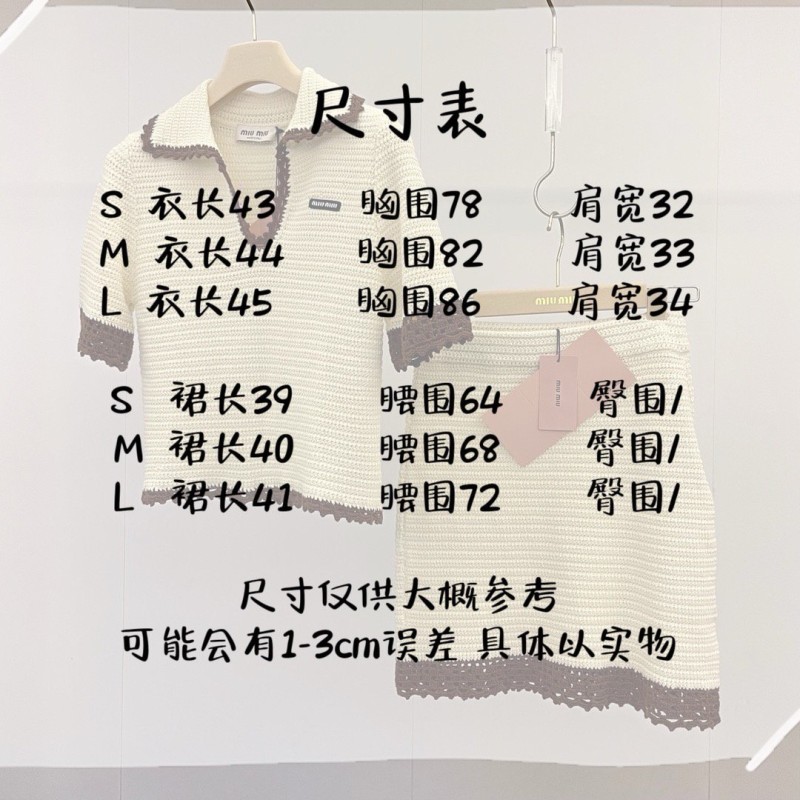 尺寸表
miu miu
miu miu
S 衣长43 胸围78 肩宽32
M 衣长44 胸围82 肩宽33
L 衣长45 胸围86 肩宽34
MIU MIU
miu miu
S 裙长39 腰围64 臀围/
M 裙长40 腰围68 臀围/
L 裙长41 腰围72 臀围/
尺寸仅供大概参考
可能会有1-3cm误差 具体以实物